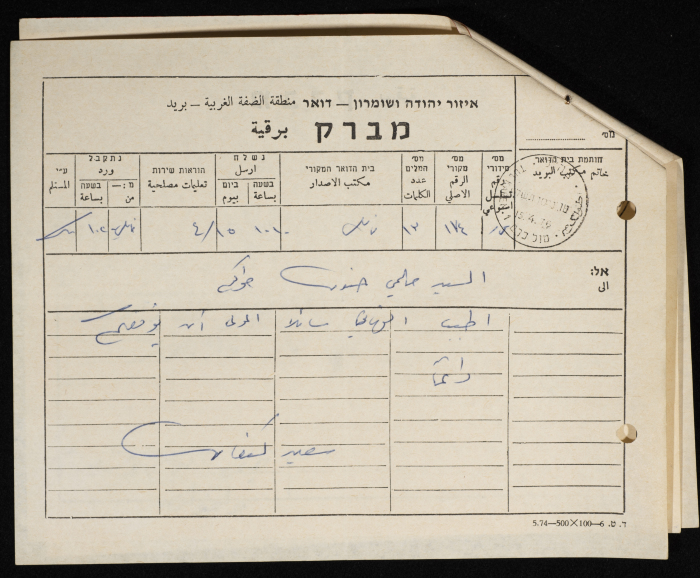 איזור יהודה ושומרון – דואר منطقة الضفة الغربية – بريد
מברק برقية
מס׳
חותמת בית הדואר
خاتم مكتب البريد
מס׳ סידורי
מס׳ מקורי الرقم الاصلي
מס׳ המלים عدد الكلمات
בית הדואר המקורי مكتب الاصدار
הוראות שירות تعليمات مصلحية
נשלח ارسل
בשעה بساعة
ביום بيوم
נתקבל ورد
מ: من
בשעה بساعة
ע״י المستلم
١٧٤ ١٣ نابلس ١٠١٠ ٤/١٥
אל:
الى
السيد حلمي حنون طولكرم
اطيب التهاني سائلا المولى أن يوفقكم
دائما
سعيد كنعان
ד. ט. 6—100×500—5.74